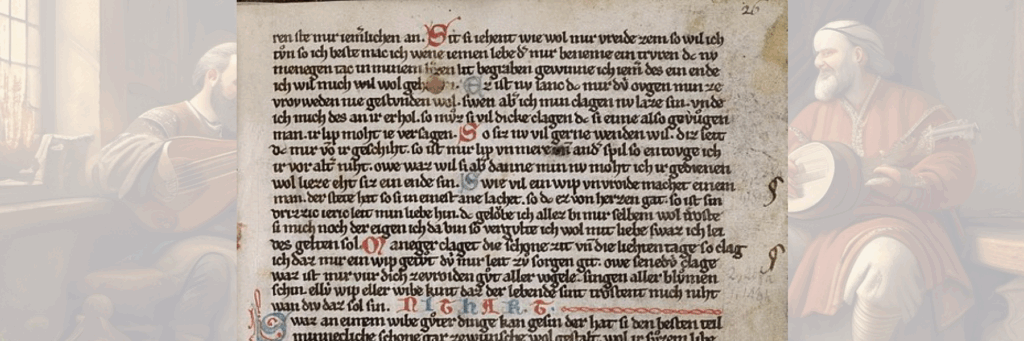 26
ren ste mur iemslichen an. Sit si iehent wie wol mur vreide zem so wil ich
tvͦn so ich beste mac ich wene iemen lebe dͬ mur beneme ein trvren dc nv
menegen tac in minem herzen lit begraben gewinne ich iem des ein ende
ich wil mich wil wol ez ist nv lanc dc mur dv ovgen min ze
vrovweden nie gestvnden wol. swen ab ich mun clagen nv laze sin. vnde
ich much des an ir erhol. so mvͦz si vil dicke clagen dc si eine also gevuͤgen
man. ir lip moht ie versagen. So siz nv vil gerne wenden wil. diz leit
dc mur vō ir geschiht. so ist mur lip vn mere and spil so en tovge ich
ir vor alt niht. owe waz wil si ab danne min nv moht ich ir gedienen
wol lieze eht siz ein ende sin. Swie vil ein wip vnvroide machet einem
man. der stete hat so si in einest ane lachet. so dc ez von herzen gat. so ist sin
drizzic ieric leit mun liebe hin. dc gelobe ich allez bi mur selbem wol troste
si mich noch der eigen ich da bin so vergvlte ich wol mit liebe swaz ich lei
des gelten sol. Maneger claget die schone zit vn̄ die liehten tage so clag
ich daz mur ein wip gebvt dv mir leit zv sorgen git. owe senedv clage
waz ist mur vur dich zevroiden gvͦt aller vogele. singen aller blvͦmen
schin. ellv wip eller wibe kunt daz der lebende sint trostent mich niht
wan div daz sol sin. NITHART.
Swaz an einem wibe gvͦter dinge kan gesin der hat si den besten teil
minnecliche schone gar zewunsche wol gestalt. wol ir svͦzem libe